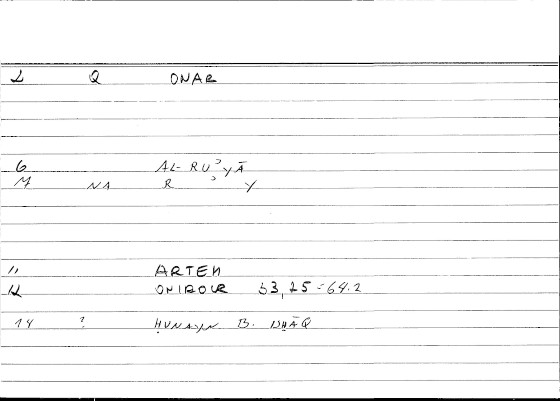 2 Q ONAR
6 AL-RUʾYĀ
7 NA R ʾ Y
11 ARTEM
12 ONIROCR 53,25=64.2
14 ? ḤUNAYN B. ISḤĀQ